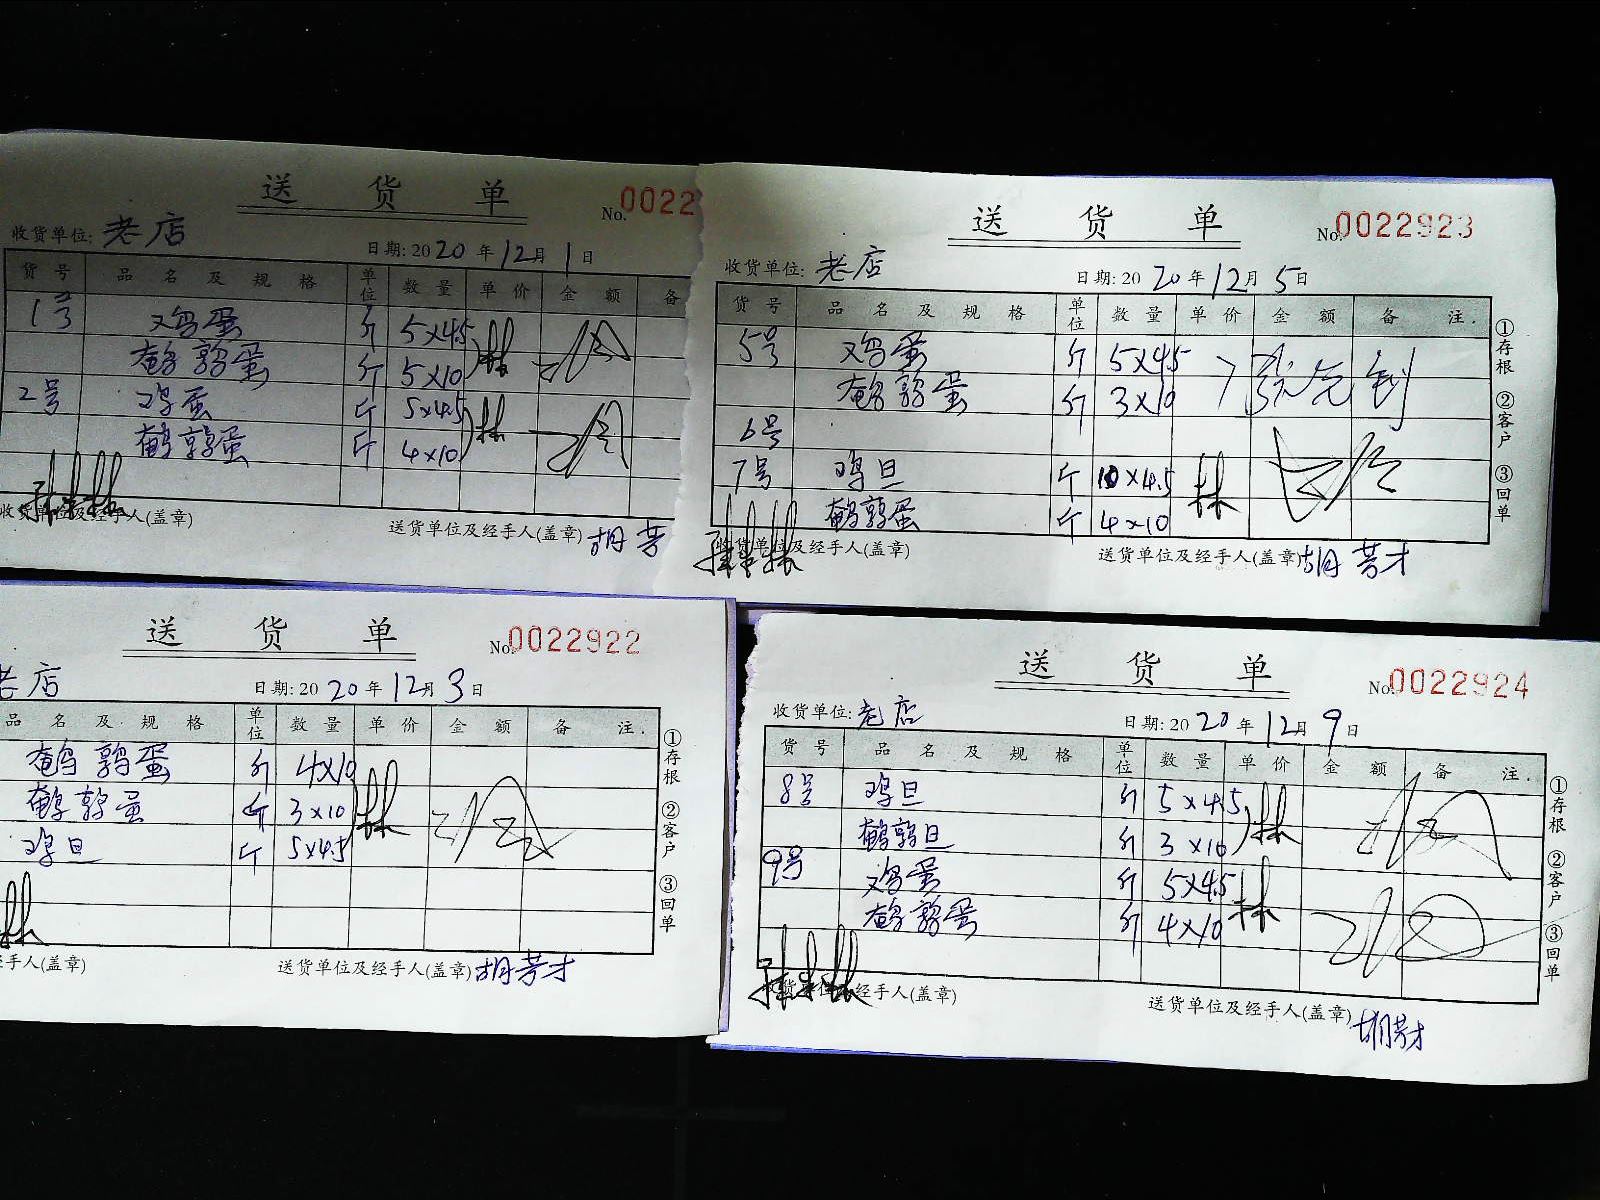 送 货 单
No. 0022
收货单位: 老店
日期: 2020 年 12月 1日
货 号 品 名 及 规 格 单位 数 量 单 价 金 额 备
1号 鸡蛋 斤 5×4.5
鹌鹑蛋 斤 5×10
2号 鸡蛋 斤 5×4.5
鹌鹑蛋 斤 4×10
收货单位及经手人(盖章)
送货单位及经手人(盖章) 胡芳
送 货 单
No. 0022923
收货单位: 老店
日期: 2020 年 12月 5日
货 号 品 名 及 规 格 单位 数 量 单 价 金 额 备 注.
5号 鸡蛋 斤 5×4.5
鹌鹑蛋 斤 3×10
6号
7号 鸡旦 斤 10×4.5
鹌鹑蛋 斤 4×10
收货单位及经手人(盖章)
送货单位及经手人(盖章) 胡芳才
①存根 ②客户 ③回单
送 货 单
No. 0022922
老店
日期: 2020 年 12月 3日
品 名 及 规 格 单位 数 量 单 价 金 额 备 注.
鹌鹑蛋 斤 4×10
鹌鹑蛋 斤 3×10
鸡旦 斤 5×4.5
经手人(盖章)
送货单位及经手人(盖章) 胡芳才
①存根 ②客户 ③回单
送 货 单
No. 0022924
收货单位: 老店
日期: 2020 年 12月 9日
货 号 品 名 及 规 格 单位 数 量 单 价 金 额 备 注.
8号 鸡旦 斤 5×4.5
鹌鹑旦 斤 3×10
9号 鸡蛋 斤 5×4.5
鹌鹑蛋 斤 4×10
收货单位及经手人(盖章)
送货单位及经手人(盖章) 胡芳才
①存根 ②客户 ③回单